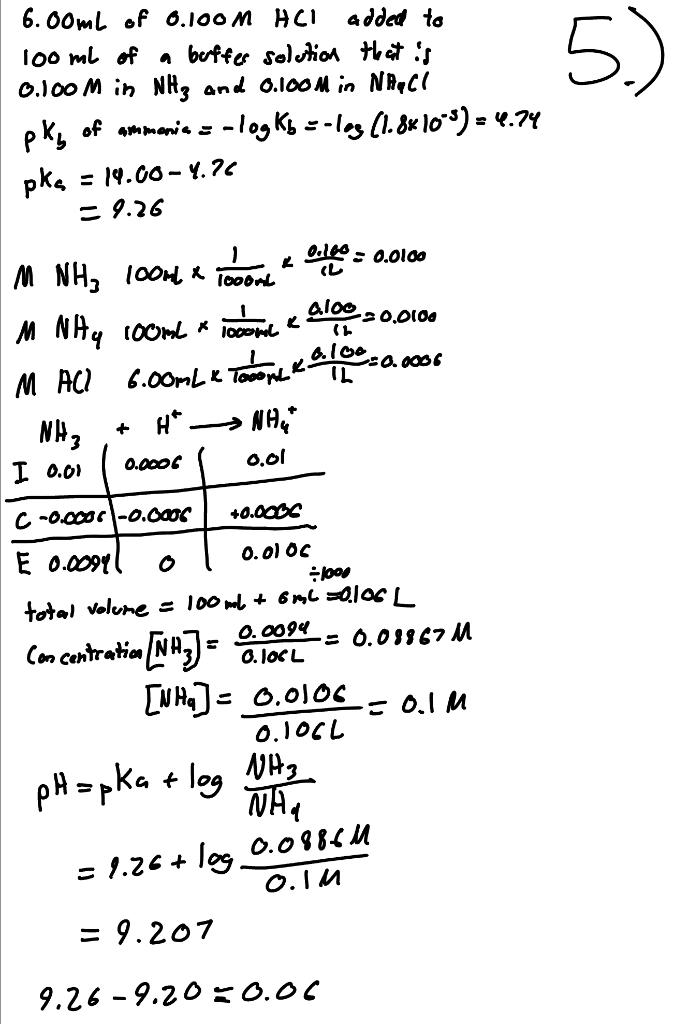 6.00mL of 0.100M HCl added to
100 mL of a buffer solution that is
0.100 M in NH3 and 0.100M in NH4Cl
5.)
pKb of ammonia = -log Kb = -log (1.8x10^-5) = 4.74
pKa = 14.00 - 4.76
= 9.26
M NH3 100mL x 1/1000mL x 0.100/1L = 0.0100
M NH4 100mL x 1/1000mL x 0.100/1L = 0.0100
M HCl 6.00mL x 1/1000mL x 0.100/1L = 0.0006
NH3 + H+ → NH4+
I 0.01 | 0.0006 | 0.01
C -0.0006 | -0.0006 | +0.0006
E 0.0094 | 0 | 0.0106
÷1000
total volume = 100 mL + 6 mL = 0.106 L
Concentration [NH3] = 0.0094/0.106L = 0.08867 M
[NH4] = 0.0106/0.106L = 0.1 M
pH = pKa + log NH3/NH4
= 9.26 + log 0.0886M/0.1M
= 9.207
9.26 - 9.20 = 0.06